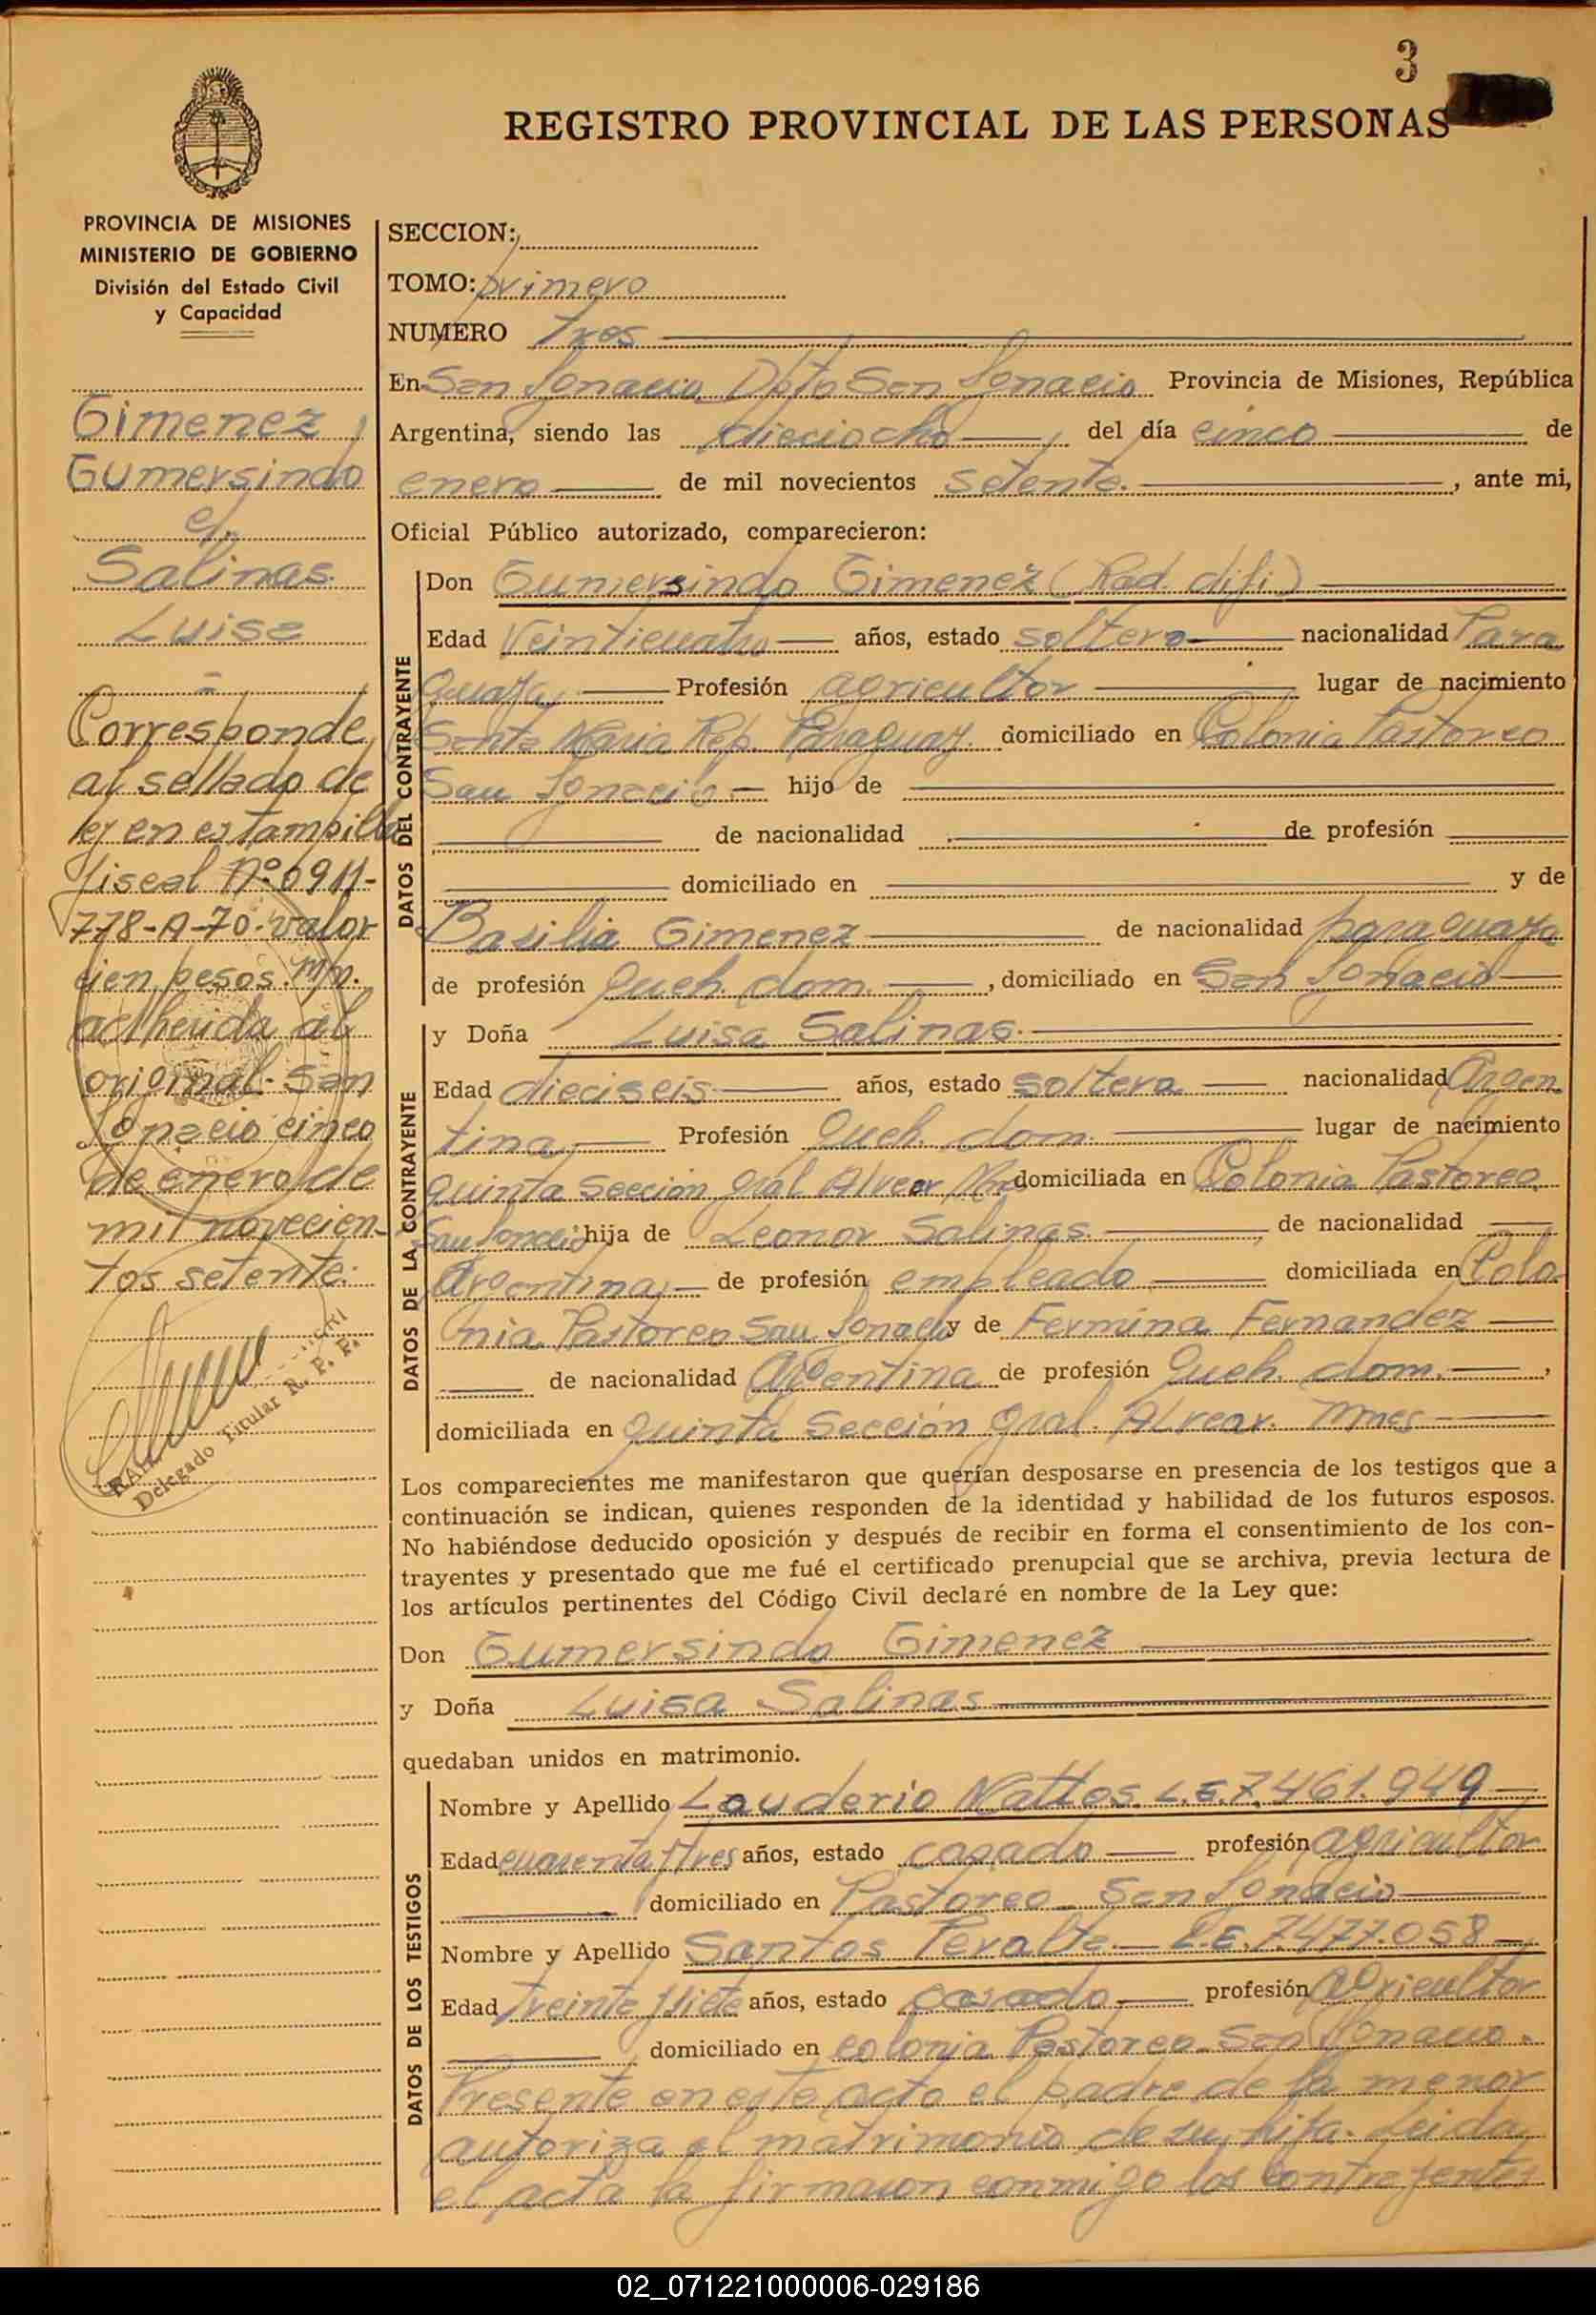 3
REGISTRO PROVINCIAL DE LAS PERSONAS
PROVINCIA DE MISIONES
MINISTERIO DE GOBIERNO
División del Estado Civil
y Capacidad
Gimenez
Gumersindo
Salinas
Luisa
Corresponde
al sellado de
ley en estampilla
fiscal Nº 6911-
778-A-70-valor
cien pesos m/n.
adherida al
original. San
Ignacio cinco
de enero de
mil novecien-
tos setenta.
Delegado Titular R. P. P.
SECCION:
TOMO: primero
NUMERO tres
En San Ignacio Dpto San Ignacio Provincia de Misiones, República
Argentina, siendo las dieciocho del día cinco de
enero de mil novecientos setenta. , ante mi,
Oficial Público autorizado, comparecieron:
DATOS DEL CONTRAYENTE
Don Gumersindo Gimenez (Rad. difi)
Edad Veinticuatro años, estado soltero nacionalidad Para
guaya Profesión agricultor lugar de nacimiento
Santa Maria Rep. Paraguay. domiciliado en Colonia Pastoreo
San Ignacio hijo de
de nacionalidad de profesión
domiciliado en y de
Basilia Gimenez de nacionalidad paraguaya
de profesión Queh. dom. , domiciliado en San Ignacio
DATOS DE LA CONTRAYENTE
y Doña Luisa Salinas.
Edad dieciseis años, estado soltera nacionalidad Argen
tina Profesión Queh. dom. lugar de nacimiento
Quinta Seccion Gral Alvear Mnes domiciliada en Colonia Pastoreo
San Ignacio hija de Leonor Salinas. , de nacionalidad
Argentina, de profesión empleado domiciliada en Colo
nia Pastoreo San Ignacio y de Fermina Fernandez
de nacionalidad Argentina de profesión Queh. dom. ,
domiciliada en Quinta Sección Gral. Alvear. Mnes
Los comparecientes me manifestaron que querían desposarse en presencia de los testigos que a
continuación se indican, quienes responden de la identidad y habilidad de los futuros esposos.
No habiéndose deducido oposición y después de recibir en forma el consentimiento de los con-
trayentes y presentado que me fué el certificado prenupcial que se archiva, previa lectura de
los artículos pertinentes del Código Civil declaré en nombre de la Ley que:
Don Gumersindo Gimenez
y Doña Luisa Salinas
quedaban unidos en matrimonio.
DATOS DE LOS TESTIGOS
Nombre y Apellido Lauderio Mattos. L.E. 7.461.949
Edad cuarenta y tres años, estado casado profesión agricultor
domiciliado en Pastoreo San Ignacio
Nombre y Apellido Santos Peralta. L.E. 7.477.058
Edad treinta y siete años, estado casado profesión agricultor
domiciliado en colonia Pastoreo San Ignacio.
Presente en este acto el padre de la menor
autoriza el matrimonio de su hija. Leida
el acta la firmaron conmigo los contrayentes
02_071221000006-029186